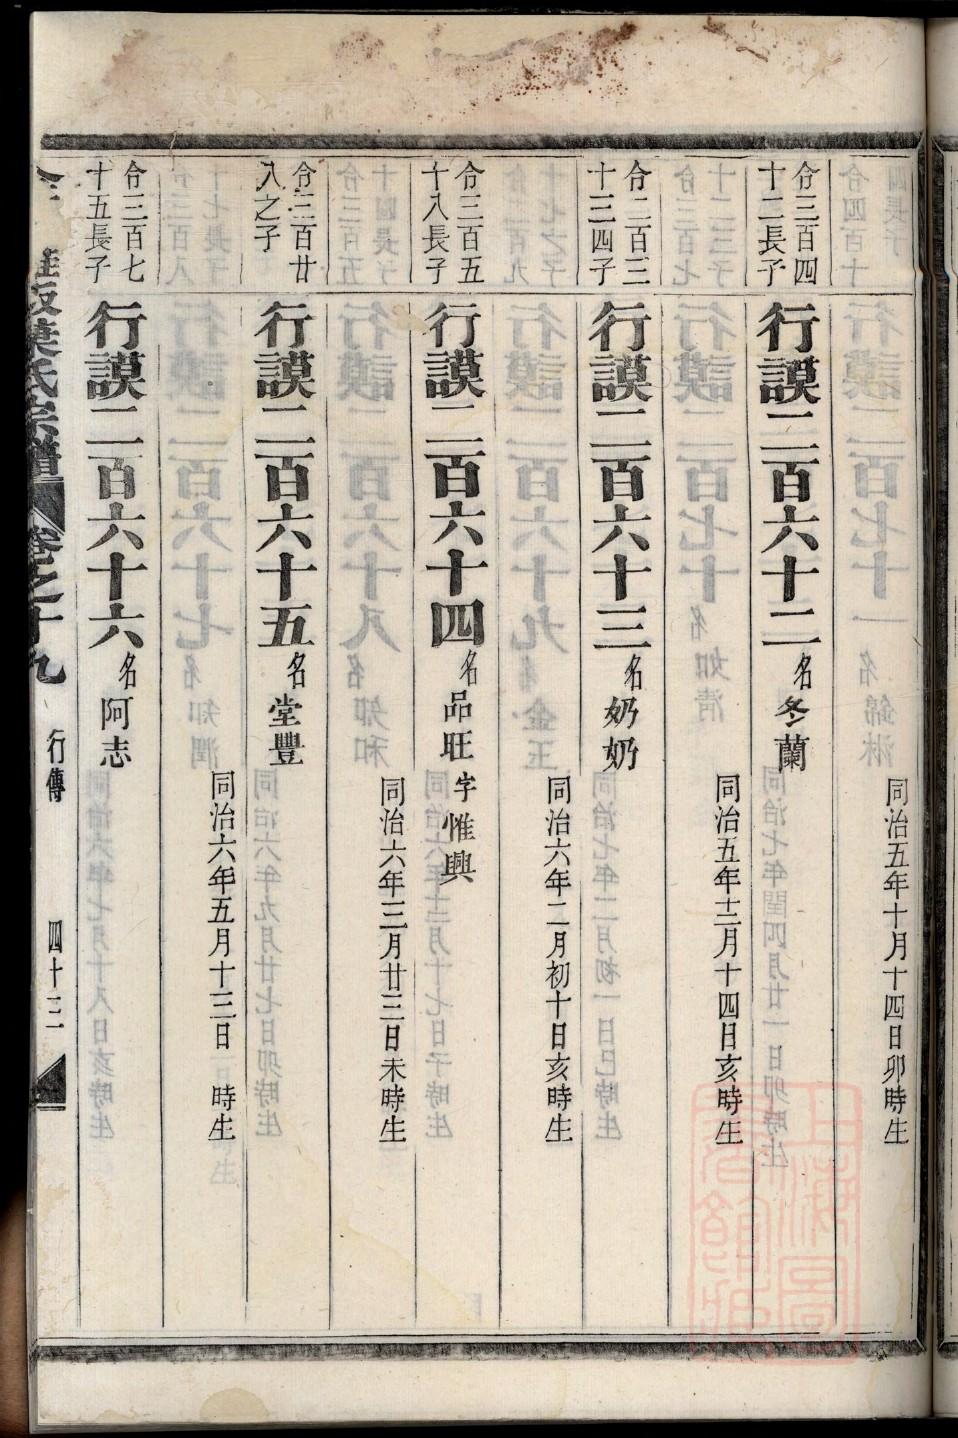 同治五年十月十四日卯時生
令三百四
十二長子
行謨二百六十二名冬蘭
同治五年十二月十四日亥時生
令二百三
十三四子
行謨二百六十三名奶奶
同治六年二月初十日亥時生
令三百五
十八長子
行謨二百六十四名品旺字惟興
同治六年三月廿三日未時生
令三百廿
八之子
行謨二百六十五名堂豐
同治六年五月十三日 時生
令三百七
十五長子
行謨二百六十六名阿志
葉氏宗譜 卷之十九 行傳 四十三
上海圖書館藏